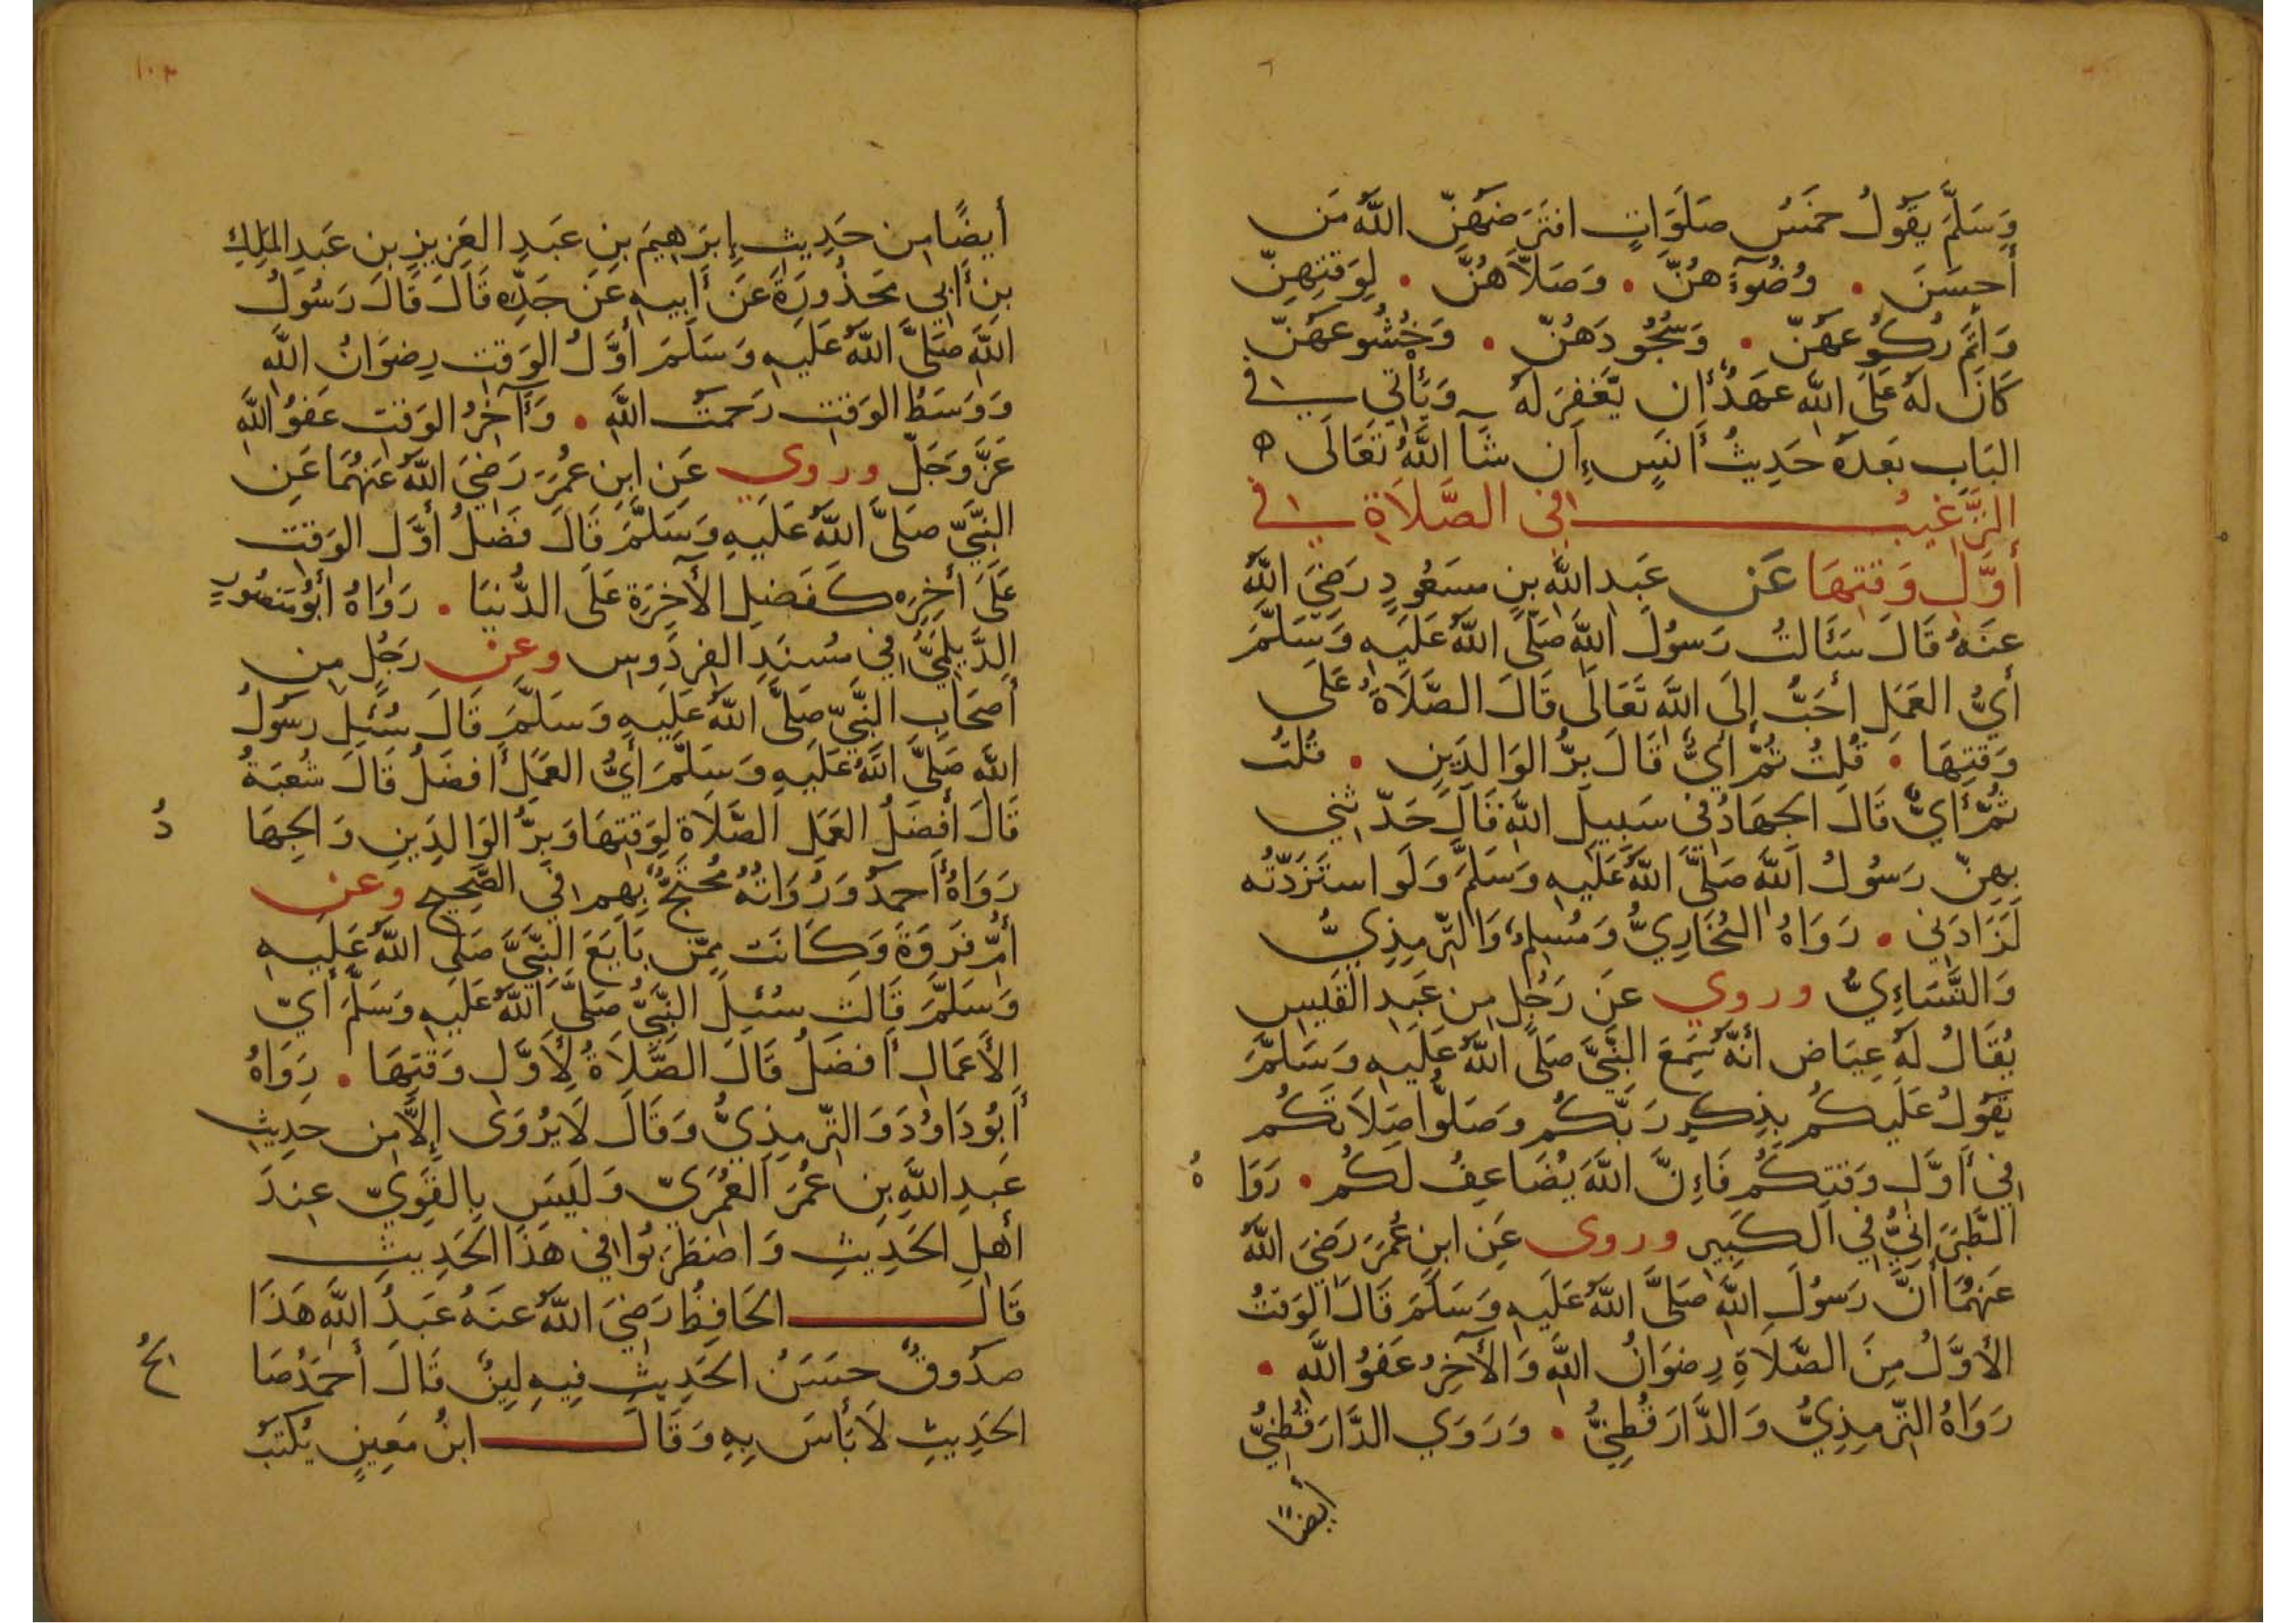 وَسَلَّمَ يَقُولُ خَمْسُ صَلَوَاتٍ افْتَرَضَهُنَّ اللَّهُ مَن
أَحْسَنَ . وُضُوءَهُنَّ . وَصَلَّاهُنَّ . لِوَقْتِهِنَّ
وَأَتَمَّ رُكُوعَهُنَّ . وَسُجُودَهُنَّ . وَخُشُوعَهُنَّ
كَانَ لَهُ عَلَى اللَّهِ عَهْدٌ أَن يَغْفِرَ لَهُ وَيَأْتِي فِي
البَابِ بَعْدَهُ حَدِيثُ أَنَسٍ إِن شَآ اللَّهُ تَعَالَى ه
التَّرْغِيبُ فِي الصَّلَاةِ فِي
أَوَّلِ وَقْتِهَا عَن عَبْدِ اللَّهِ بنِ مَسْعُودٍ رَضِيَ اللَّهُ
عَنهُ قَالَ سَأَلتُ رَسُولَ اللَّهِ صَلَّى اللَّهُ عَلَيهِ وَسَلَّمَ
أَيُّ العَمَلِ أَحَبُّ إِلَى اللَّهِ تَعَالَى قَالَ الصَّلَاةُ عَلَى
وَقْتِهَا . قُلتُ ثُمَّ أَيٌّ قَالَ بِرُّ الوَالِدَينِ . قُلتُ
ثُمَّ أَيٌّ قَالَ الجِهَادُ فِي سَبِيلِ اللَّهِ قَالَ حَدَّثَنِي
بِهِنَّ رَسُولُ اللَّهِ صَلَّى اللَّهُ عَلَيهِ وَسَلَّمَ وَلَو استَزَدتُه
لَزَادَنِي . رَوَاهُ البُخَارِيُّ وَمُسلِمٌ وَالتِّرمِذِيُّ
وَالنَّسَاءِيُّ وروي عَن رَجُلٍ مِن عَبدِ القَيسِ
يُقَالُ لَهُ عِيَاض أَنَّهُ سَمِعَ النَّبِيَّ صَلَّى اللَّهُ عَلَيهِ وَسَلَّمَ
يَقُولُ عَلَيكُم بِذِكرِ رَبِّكُم وَصَلُّوا صَلَاتَكُم
فِي أَوَّلِ وَقتِكُم فَإِنَّ اللَّهَ يُضَاعِفُ لَكُم . رَوَا هُ
الطَّبَرَانِيُّ فِي الكَبِيرِ وروى عَنِ ابنِ عُمَرَ رَضِيَ اللَّهُ
عَنهُمَا أَنَّ رَسُولَ اللَّهِ صَلَّى اللَّهُ عَلَيهِ وَسَلَّمَ قَالَ الوَقتُ
الأَوَّلُ مِنَ الصَّلَاةِ رِضوَانُ اللَّهِ وَالآخِرُ عَفوُ اللَّهِ .
رَوَاهُ التِّرمِذِيُّ وَالدَّارَقُطنِيُّ . وَرَوَى الدَّارَقُطنِيُّ
أيضًا
١٠٣
أَيضًا مِن حَدِيثِ إِبرَاهِيمَ بنِ عَبدِ العَزِيزِ بنِ عَبدِ المَلِكِ
بنِ أَبِي مَحذُورَةَ عَن أَبِيهِ عَن جَدِّهِ قَالَ قَالَ رَسُولُ
اللَّهِ صَلَّى اللَّهُ عَلَيهِ وَسَلَّمَ أَوَّلُ الوَقتِ رِضوَانُ اللَّهِ
وَوَسَطُ الوَقتِ رَحمَتُ اللَّهِ . وَآخِرُ الوَقتِ عَفوُ اللَّهِ
عَزَّ وَجَلَّ وروي عَنِ ابنِ عُمَرَ رَضِيَ اللَّهُ عَنهُمَا عَنِ
النَّبِيِّ صَلَّى اللَّهُ عَلَيهِ وَسَلَّمَ قَالَ فَضلُ أَوَّلِ الوَقتِ
عَلَى أَخِرِهِ كَفَضلِ الآخِرَةِ عَلَى الدُّنيَا . رَوَاهُ أَبُو مَنصُورٍ
الدَّيلَمِيُّ فِي مُسنَدِ الفِردَوسِ وعن رَجُلٍ مِن
أَصحَابِ النَّبِيِّ صَلَّى اللَّهُ عَلَيهِ وَسَلَّمَ قَالَ سُئِلَ رَسُولُ
اللَّهِ صَلَّى اللَّهُ عَلَيهِ وَسَلَّمَ أَيُّ العَمَلِ أَفضَلُ قَالَ شُعبَةُ
قَالَ أَفضَلُ العَمَلِ الصَّلَاةُ لِوَقتِهَا وَبِرُّ الوَالِدَينِ وَالجِهَا دُ
رَوَاهُ أَحمَدُ وَرُوَاتُهُ مُحتَجٌّ بِهِم فِي الصَّحِيحِ وعن
أُمِّ فَروَةَ وَكَانَت مِمَّن بَايَعَ النَّبِيَّ صَلَّى اللَّهُ عَلَيهِ
وَسَلَّمَ قَالَت سُئِلَ النَّبِيُّ صَلَّى اللَّهُ عَلَيهِ وَسَلَّمَ أَيُّ
الأَعمَالِ أَفضَلُ قَالَ الصَّلَاةُ لِأَوَّلِ وَقتِهَا . رَوَاهُ
أَبُو دَاوُدَ وَالتِّرمِذِيُّ وَقَالَ لَا يُروَى إِلَّا مِن حَدِيثِ
عَبدِ اللَّهِ بنِ عُمَرَ العُمَرِيِّ وَلَيسَ بِالقَوِيِّ عِندَ
أَهلِ الحَدِيثِ وَاضطَرَبُوا فِي هَذَا الحَدِيثِ
قَالَ الحَافِظُ رَضِيَ اللَّهُ عَنهُ عَبدُ اللَّهِ هَذَا
صَدُوقٌ حَسَنُ الحَدِيثِ فِيهِ لِينٌ قَالَ أَحمَدُ صَا لحُ
الحَدِيثِ لَا بَأسَ بِهِ وَقَالَ ابنُ مَعِينٍ يُكتَبُ